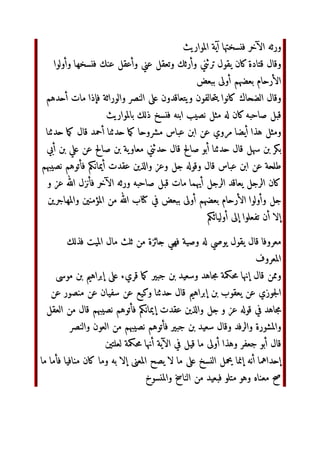 ورثه الآخر فنسختها آية المواريث
وقال قتادة كان يقول ترثني وأرثك وتعقل عني وأعقل عنك فنسخها وأولوا
الأرحام بعضهم أولى ببعض
وقال الضحاك كانوا يتحالفون ويتعاقدون على النصر والوراثة فإذا مات أحدهم
قبل صاحبه كان له مثل نصيب ابنه فنسخ ذلك بالمواريث
ومثل هذا أيضا مروي عن ابن عباس مشروحا كما حدثنا أحمد قال كما حدثنا
بكر بن سهل قال حدثنا أبو صالح قال حدثني معاوية بن صالح عن علي بن أبي
طلحة عن ابن عباس قال وقوله جل وعز والذين عقدت أيمانكم فأتوهم نصيبهم
كان الرجل يعاقد الرجل أيهما مات قبل صاحبه ورثه الآخر فأنزل الله عز و
جل وأولوا الأرحام بعضهم أولى ببعض في كتاب الله من المؤمنين والمهاجرين
إلا أن تفعلوا إلى أوليائكم
معروفا قال يقول يوصي له وصية فهي جائزة من ثلث مال الميت فذلك
المعروف
وممن قال إنها محكمة مجاهد وسعيد بن جبير كما قريء على إبراهيم بن موسى
الجوزي عن يعقوب بن إبراهيم قال حدثنا وكيع عن سفيان عن منصور عن
مجاهد في قوله عز و جل والذين عقدت إيمانكم فأتوهم نصيبهم قال من العقل
والمشورة والرفد وقال سعيد بن جبير فأتوهم نصيبهم من العون والنصر
قال أبو جعفر وهذا أولى ما قيل في الآية أنها محكمة لعلتين
إحداهما أنه إنما يحمل النسخ على ما لا يصح المعنى إلا به وما كان منافيا فأما ما
صح معناه وهو متلو فبعيد من الناسخ والمنسوخ